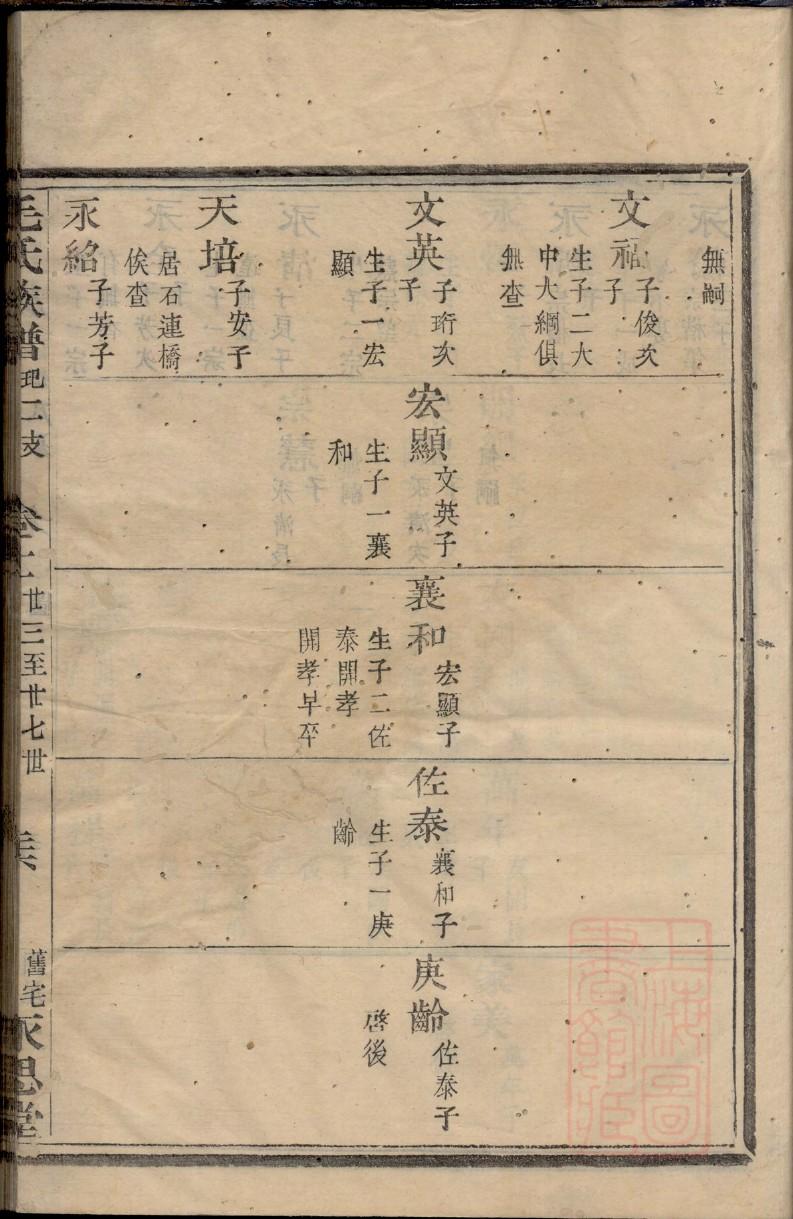 無嗣
文福 子俊次子
生子二大
中大綱俱
無查
文英 子珩次子
生子一宏
顯
天培 子安子
居石連橋
俟查
永紹 子芳子
宏顯 文英子
生子一襄
和
襄和 宏顯子
生子二佐
泰開孝
開孝早卒
佐泰 襄和子
生子一庚
齡
庚齡 佐泰子
啓後
毛氏族譜 卷十 廿三至廿七世
舊宅永思堂
上海圖書館藏